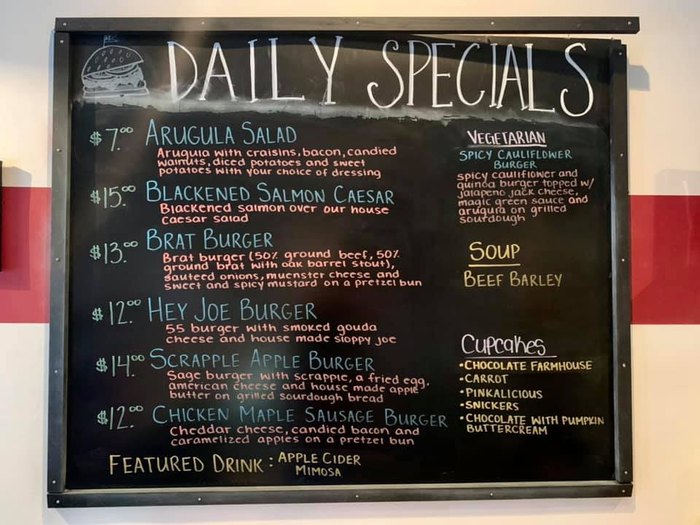 DAILY SPECIALS
$7.00 ARUGULA SALAD
Arugula with craisins, bacon, candied
walnuts, diced potatoes and sweet
potatoes with your choice of dressing
$15.00 BLACKENED SALMON CAESAR
Blackened salmon over our house
caesar salad
$13.00 BRAT BURGER
Brat burger (50% ground beef, 50%
ground brat with oak barrel stout),
sauteed onions, muenster cheese and
sweet and spicy mustard on a pretzel bun
$12.00 HEY JOE BURGER
55 burger with smoked gouda
cheese and house made sloppy joe
$14.00 SCRAPPLE APPLE BURGER
Sage burger with scrapple, a fried egg,
american cheese and house made apple
butter on grilled sourdough bread
$12.00 CHICKEN MAPLE SAUSAGE BURGER
Cheddar cheese, candied bacon and
caramelized apples on a pretzel bun
FEATURED DRINK: APPLE CIDER
MIMOSA
VEGETARIAN
SPICY CAULIFLOWER
BURGER
spicy cauliflower and
quinoa burger topped w/
jalapeno jack cheese,
magic green sauce and
arugura on grilled
sourdough
SOUP
BEEF BARLEY
CUPCAKES
•CHOCOLATE FARMHOUSE
•CARROT
•PINKALICIOUS
•SNICKERS
•CHOCOLATE WITH PUMPKIN
BUTTERCREAM